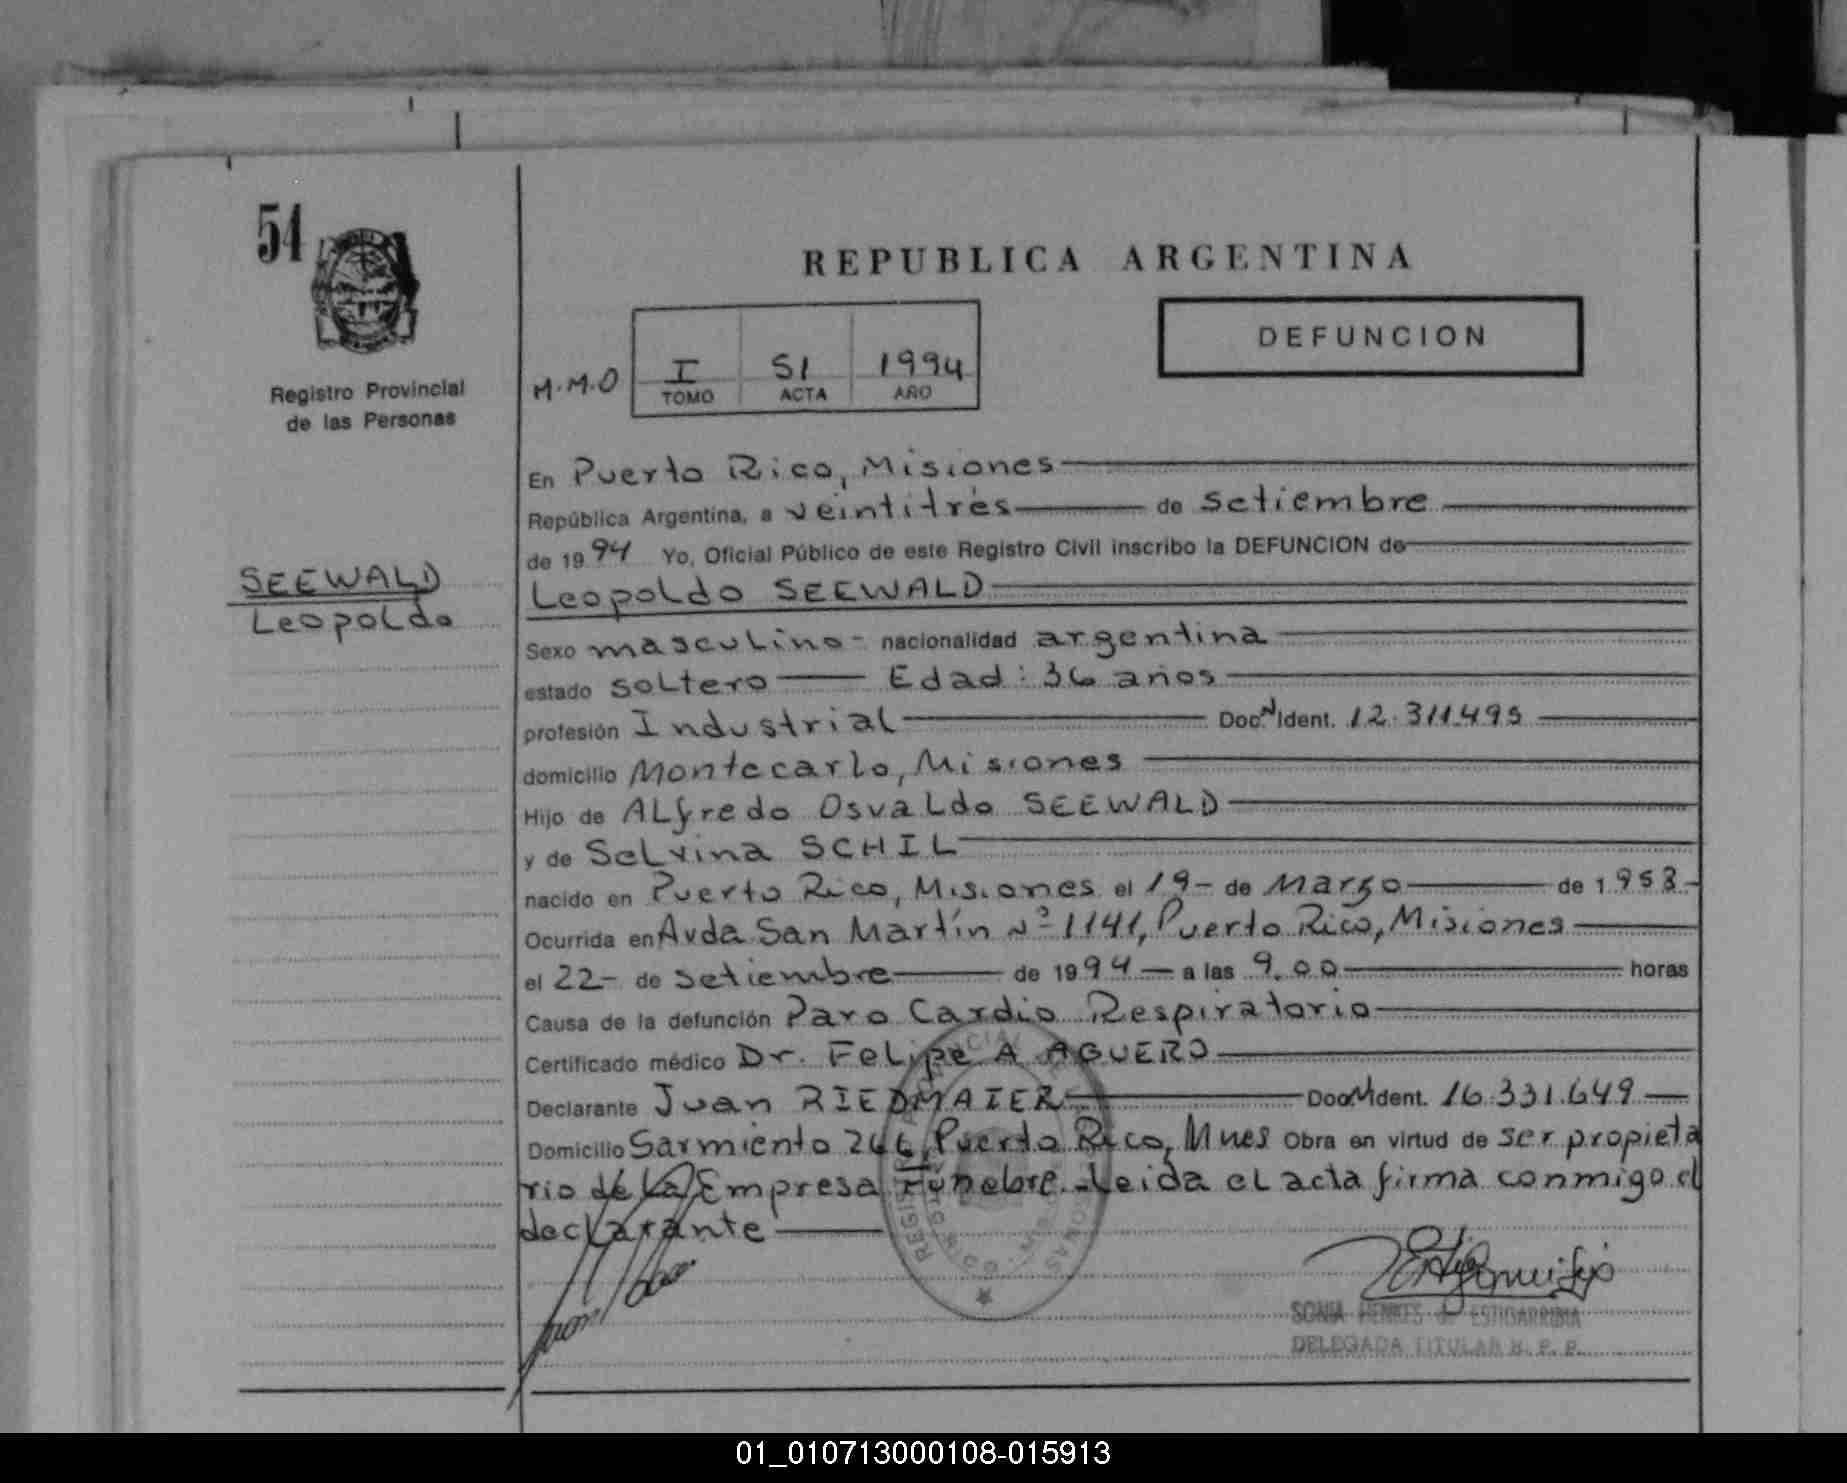 51
REPUBLICA ARGENTINA
DEFUNCION
Registro Provincial
de las Personas
M.M.O
I 51 1994
TOMO ACTA AÑO
En Puerto Rico, Misiones
República Argentina, a veintitrés de Setiembre
de 1994 Yo, Oficial Público de este Registro Civil inscribo la DEFUNCION de
SEEWALD
Leopoldo
Leopoldo SEEWALD
Sexo masculino - nacionalidad argentina
estado soltero Edad: 36 años
profesión Industrial Doc. N Ident. 12.311.495
domicilio Montecarlo, Misiones
Hijo de Alfredo Osvaldo SEEWALD
y de Selvina SCHIL
nacido en Puerto Rico, Misiones el 19 - de Marzo de 1.958 -
Ocurrida en Avda San Martín Nº 1141, Puerto Rico, Misiones
el 22 - de Setiembre de 1994 a las 9.00 horas
Causa de la defunción Paro Cardio Respiratorio
Certificado médico Dr. Felipe A AGUERO
Declarante Juan RIEDMAIER Doc. N Ident. 16.331.649
Domicilio Sarmiento 266, Puerto Rico, Mnes Obra en virtud de ser propieta
rio de la Empresa Funebre. Leida el acta firma conmigo el
declarante
SONIA HENRES de ESTIGARRIBIA
DELEGADA TITULAR R. P. P.
01_010713000108-015913